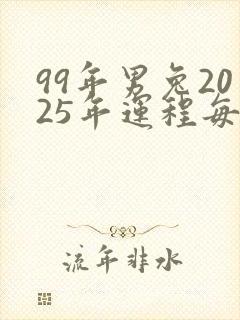 99年男兔20
25年運程每
流年非水